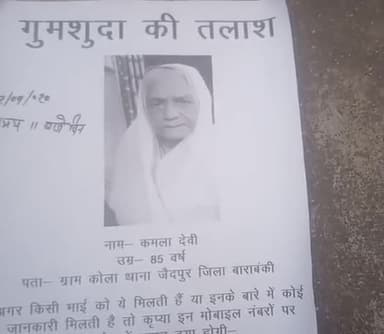 गुमशुदा की तलाश
नाम– कमला देवी
उम्र– 85 वर्ष
पता– ग्राम कोला थाना जैदपुर जिला बाराबंकी
अगर किसी भाई को ये मिलती हैं या इनके बारे में कोई
जानकारी मिलती है तो कृप्या इन मोबाइल नंबरों पर